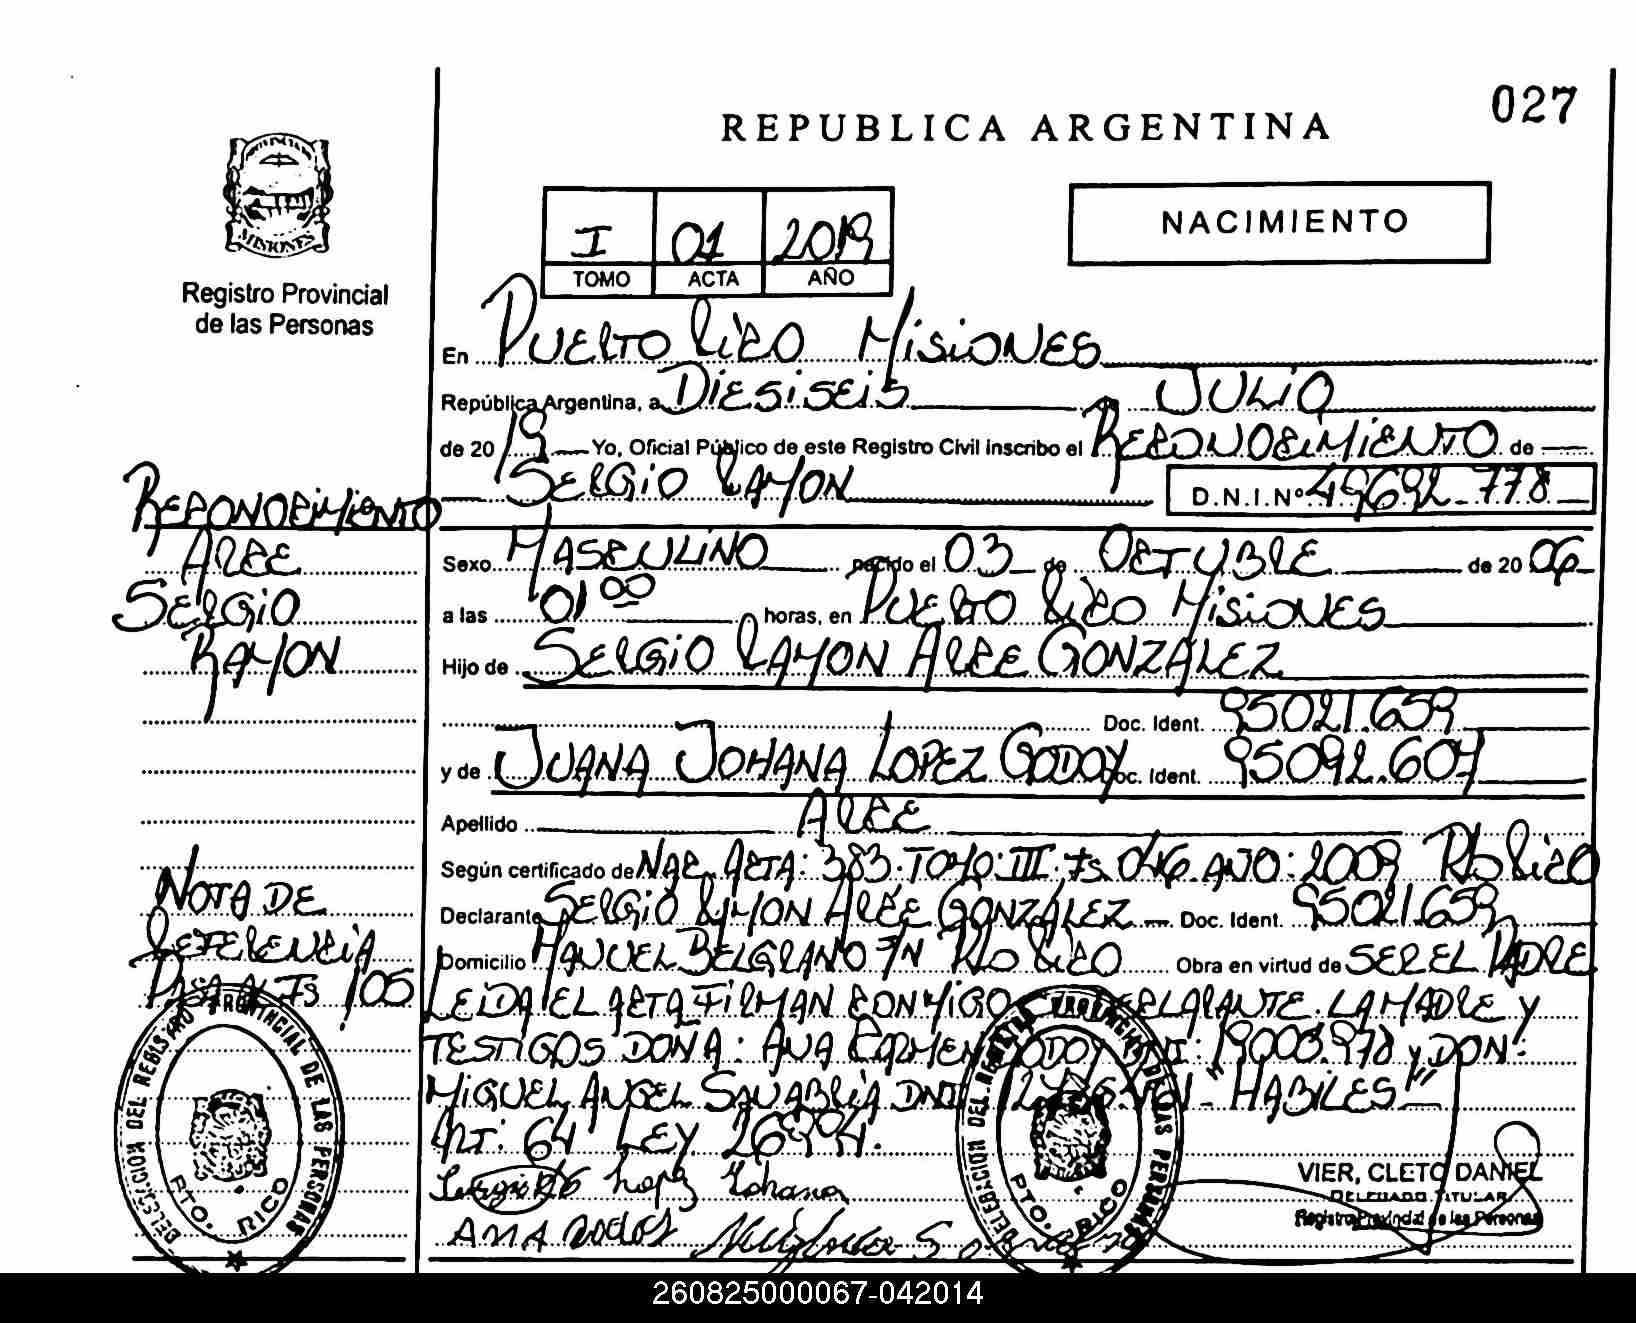 027
REPUBLICA ARGENTINA
NACIMIENTO
MISIONES
Registro Provincial
de las Personas
I 01 2019
TOMO ACTA AÑO
En PUERTO RICO MISIONES
República Argentina, a DIESISEIS de JULIO
de 20 19 Yo, Oficial Público de este Registro Civil inscribo el RECONOCIMIENTO de
SERGIO RAMON D.N.I.Nº 49692.778
RECONOCIMIENTO
ARCE
SERGIO
RAMON
Sexo MASCULINO nacido el 03 de OCTUBRE de 20 06
a las 01 00 horas, en PUERTO RICO MISIONES
Hijo de SERGIO RAMON ARCE GONZALEZ
Doc. Ident. 95021.659
y de JUANA JOHANA LOPEZ GODOY Doc. Ident. 95092.607
Apellido ARCE
Según certificado de NAC. ACTA: 383. TOMO: III. Fs. 046. AÑO: 2009 Pto RICO
Declarante SERGIO RAMON ARCE GONZALEZ Doc. Ident. 95021.659
Domicilio MANUEL BELGRANO S/N Pto RICO Obra en virtud de SER EL PADRE
LEIDA EL ACTA FIRMAN CONMIGO DECLARANTE. LA MADRE Y
TESTIGOS DOÑA: ANA CARMEN GODOY DNI: 19000.978 y DON:
MIGUEL ANGEL SANABRIA DNI "HABILES"
ART: 64 LEY. 26994.
NOTA DE
REFERENCIA
PASA AL Fs 105
Lopez Johana
ANA
VIER, CLETO DANIEL
DELEGADO TITULAR
Registro Provincial de las Personas
DELEGACION DEL REGISTRO PROVINCIAL DE LAS PERSONAS
PTO. RICO
DELEGACION DEL REGISTRO PROVINCIAL DE LAS PERSONAS
PTO. RICO
260825000067-042014